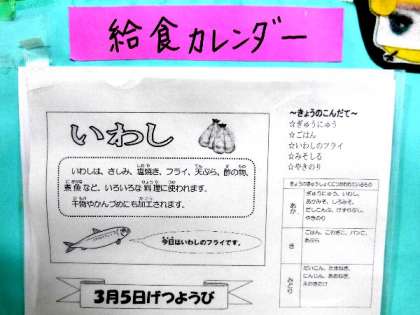 給食カレンダー
いわし
いわしは、さしみ、塩焼き、フライ、天ぷら、酢の物、
煮魚など、いろいろな料理に使われます。
干物やかんづめにも加工されます。
今日はいわしのフライです。
3月5日げつようび
～きょうのこんだて～
☆ぎゅうにゅう
☆ごはん
☆いわしのフライ
☆みそしる
☆やきのり
あか
ぎゅうにゅう、いわし、
あかみそ、しろみそ、
だしこんぶ、けずりぶし、
やきのり
き
ごはん、こむぎこ、パンこ、
あぶら
みどり
だいこん、たまねぎ、
にんじん、あおねぎ、
えのきたけ